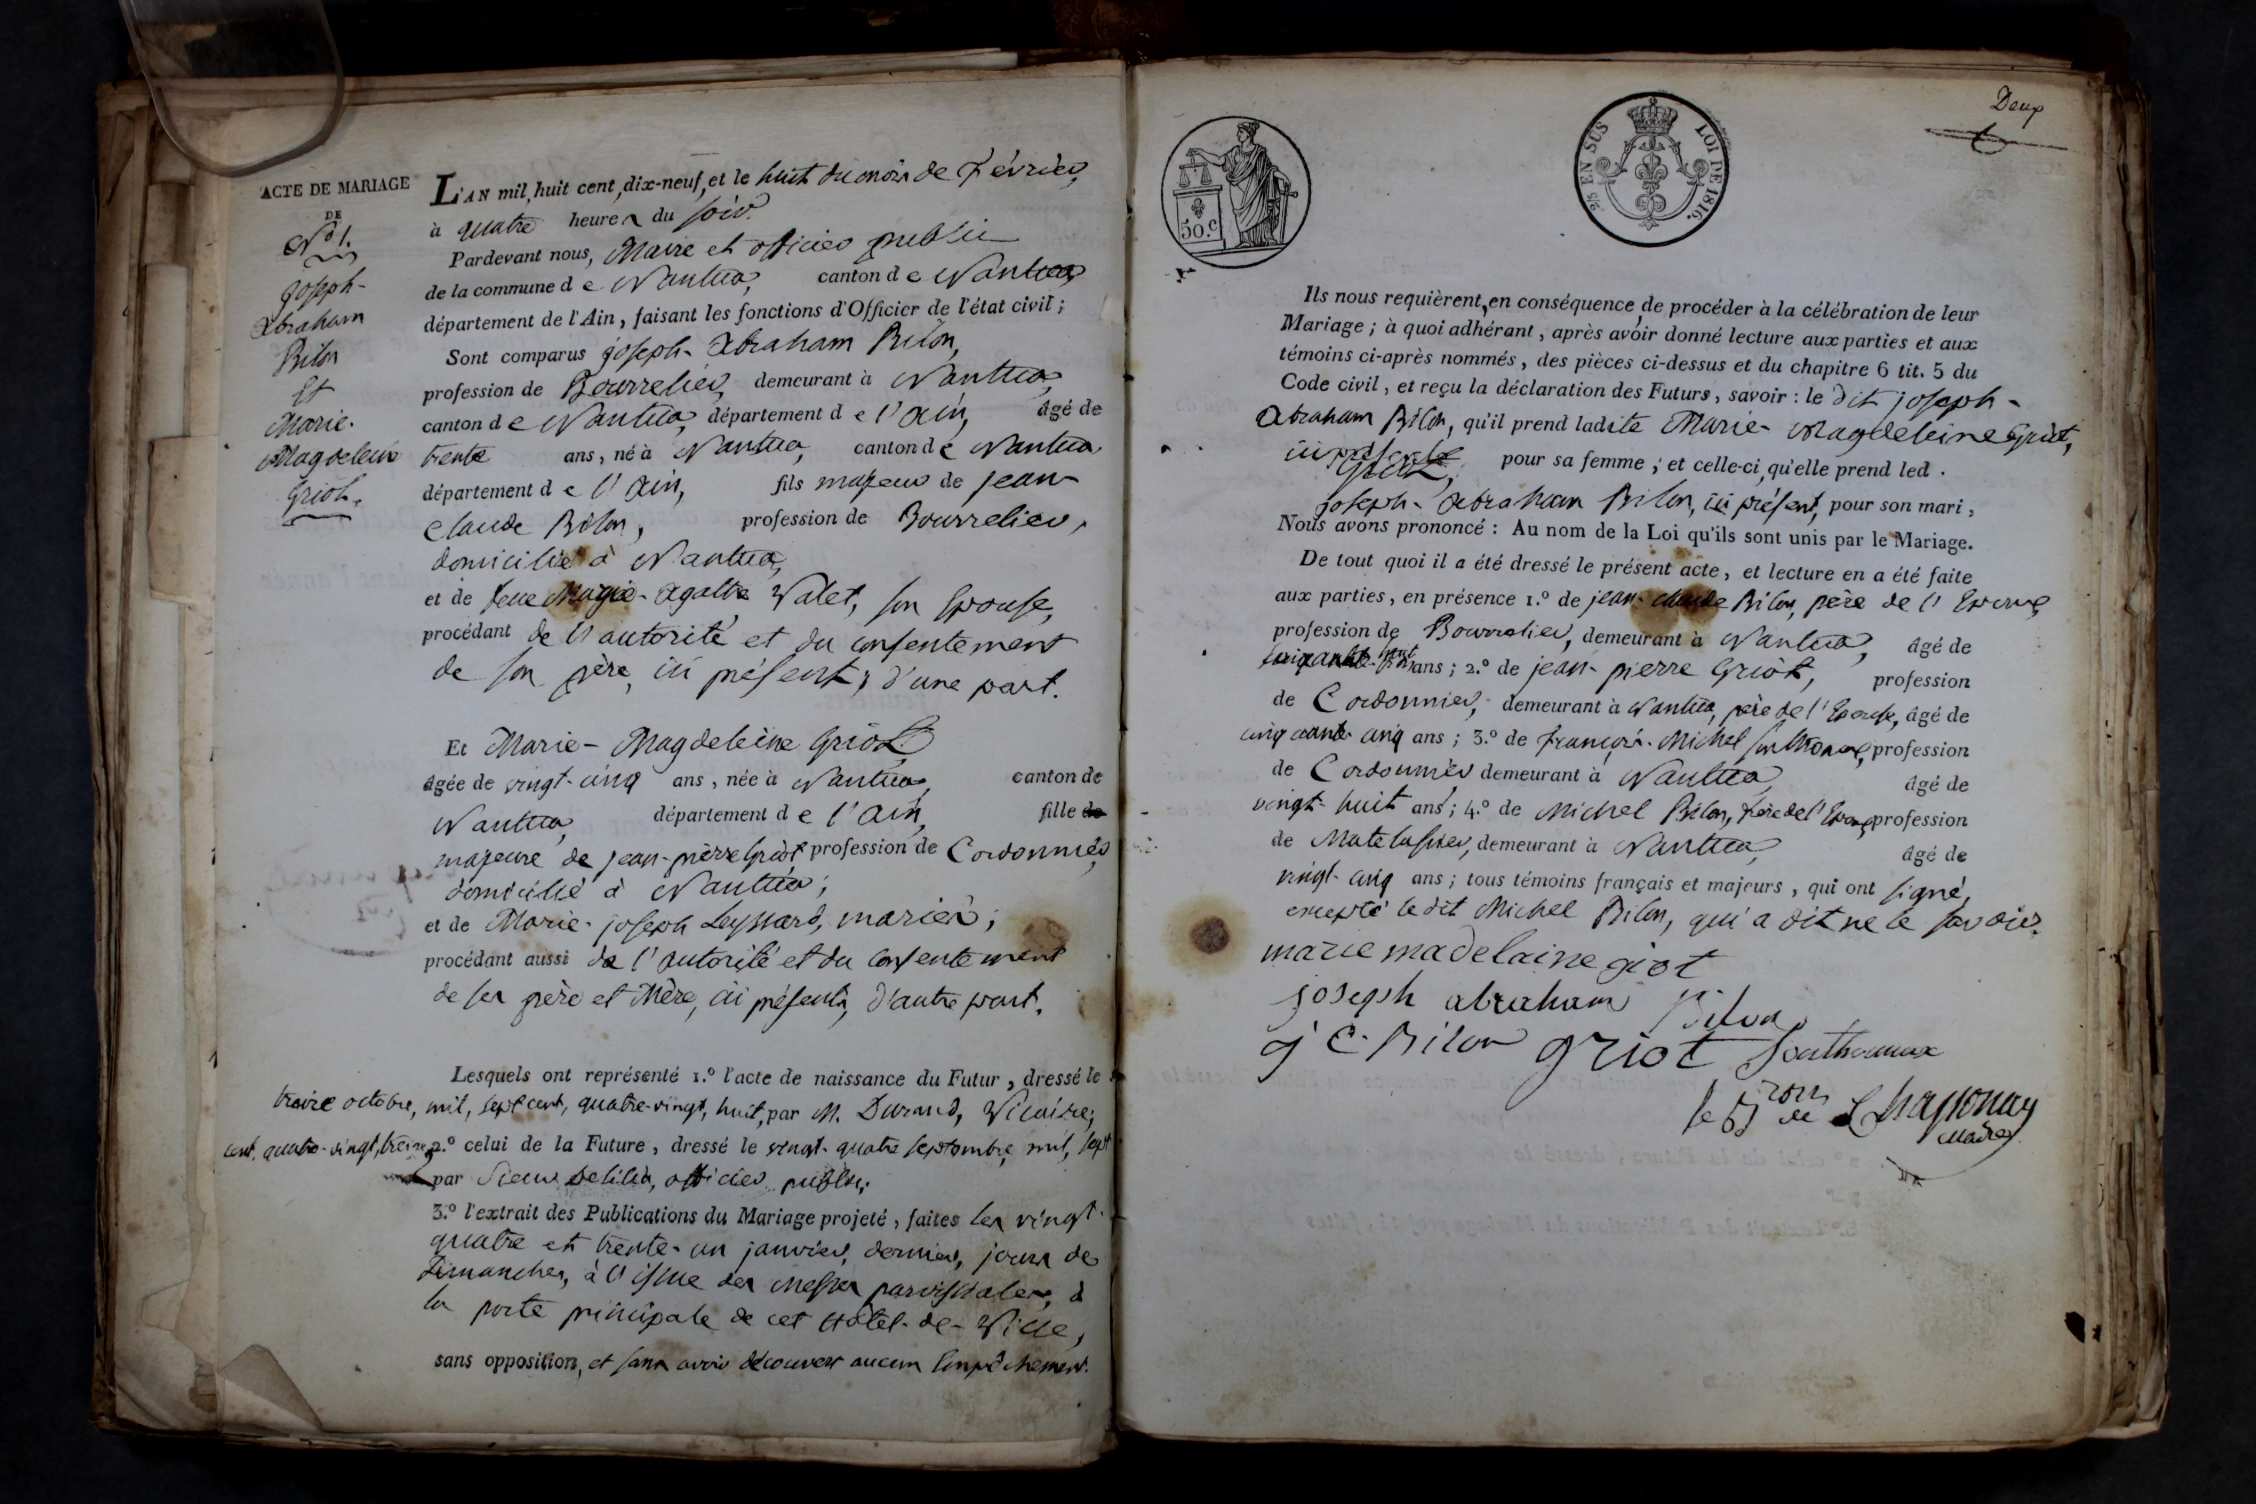 ACTE DE MARIAGE
DE
N.º 1.
Joseph-
Abraham
Bilon
Et
Marie-
Magdeleine
Griot.
L'AN mil, huit cent, dix-neuf, et le huit du mois de février,
à quatre heures du soir.
Pardevant nous, Maire et officier public
de la commune de Nantua, canton de Nantua,
département de l'Ain, faisant les fonctions d'Officier de l'état civil;
Sont comparus joseph-Abraham Bilon,
profession de Bourrelier, demeurant à Nantua,
canton de Nantua, département de l'Ain, âgé de
trente ans, né à Nantua, canton de Nantua
département de l'Ain, fils majeur de jean-
claude Bilon, profession de Bourrelier,
domicilié à Nantua,
et de feue Marie-Agathe Valet, son Epouse,
procédant de l'autorité et du consentement
de son père, ici présent, d'une part.
Et Marie-Magdeleine Griot,
âgée de vingt-cinq ans, née à Nantua, canton de
Nantua, département de l'Ain, fille de
majeure de jean-pierre Griot profession de Cordonnier,
domicilié à Nantua;
et de Marie-joseph Leyssard, mariés;
procédant aussi de l'autorité et du consentement
de ses père et Mère, ici présents, d'autre part.
Lesquels ont représenté 1.º l'acte de naissance du Futur, dressé le
treize octobre, mil, sept cent, quatre-vingt, huit, par M. Durand, Vicaire;
2.º celui de la Future, dressé le vingt-quatre septembre, mil, sept
cent, quatre-vingt, treize,
par Sieur Delilia, officier public;
3.º l'extrait des Publications du Mariage projeté, faites les vingt-
quatre et trente-un janvier, dernier, jours de
Dimanches, à l'issue des Messes paroissiales, à
la porte principale de cet hôtel-de-Ville,
sans opposition, et sans avoir découvert aucun Empêchement.
Deux
50.c
2/5 EN SUS
LOI DE 1816.
Ils nous requièrent, en conséquence, de procéder à la célébration de leur
Mariage; à quoi adhérant, après avoir donné lecture aux parties et aux
témoins ci-après nommés, des pièces ci-dessus et du chapitre 6 tit. 5 du
Code civil, et reçu la déclaration des Futurs, savoir: le dit joseph-
Abraham Bilon, qu'il prend ladite Marie-Magdeleine Griot,
ici présente, pour sa femme; et celle-ci, qu'elle prend led.
joseph-Abraham Bilon, ici présent, pour son mari;
Nous avons prononcé: Au nom de la Loi qu'ils sont unis par le Mariage.
De tout quoi il a été dressé le présent acte, et lecture en a été faite
aux parties, en présence 1.º de jean-claude Bilon, père de l'Epoux,
profession de Bourrelier, demeurant à Nantua, âgé de
soixante-huit ans; 2.º de jean-pierre Griot, profession
de Cordonnier, demeurant à Nantua, père de l'Epouse, âgé de
cinquante-cinq ans; 3.º de françois-Michel Southonax, profession
de Cordonnier demeurant à Nantua, âgé de
vingt-huit ans; 4.º de Michel Bilon, frère de l'Epoux, profession
de Matelassier, demeurant à Nantua, âgé de
vingt-cinq ans; tous témoins français et majeurs, qui ont signé,
excepté le dit Michel Bilon, qui a dit ne le savoir.
marie madelaine giot
joseph abraham Bilon
j C. Bilon griot Southonnax
Maire